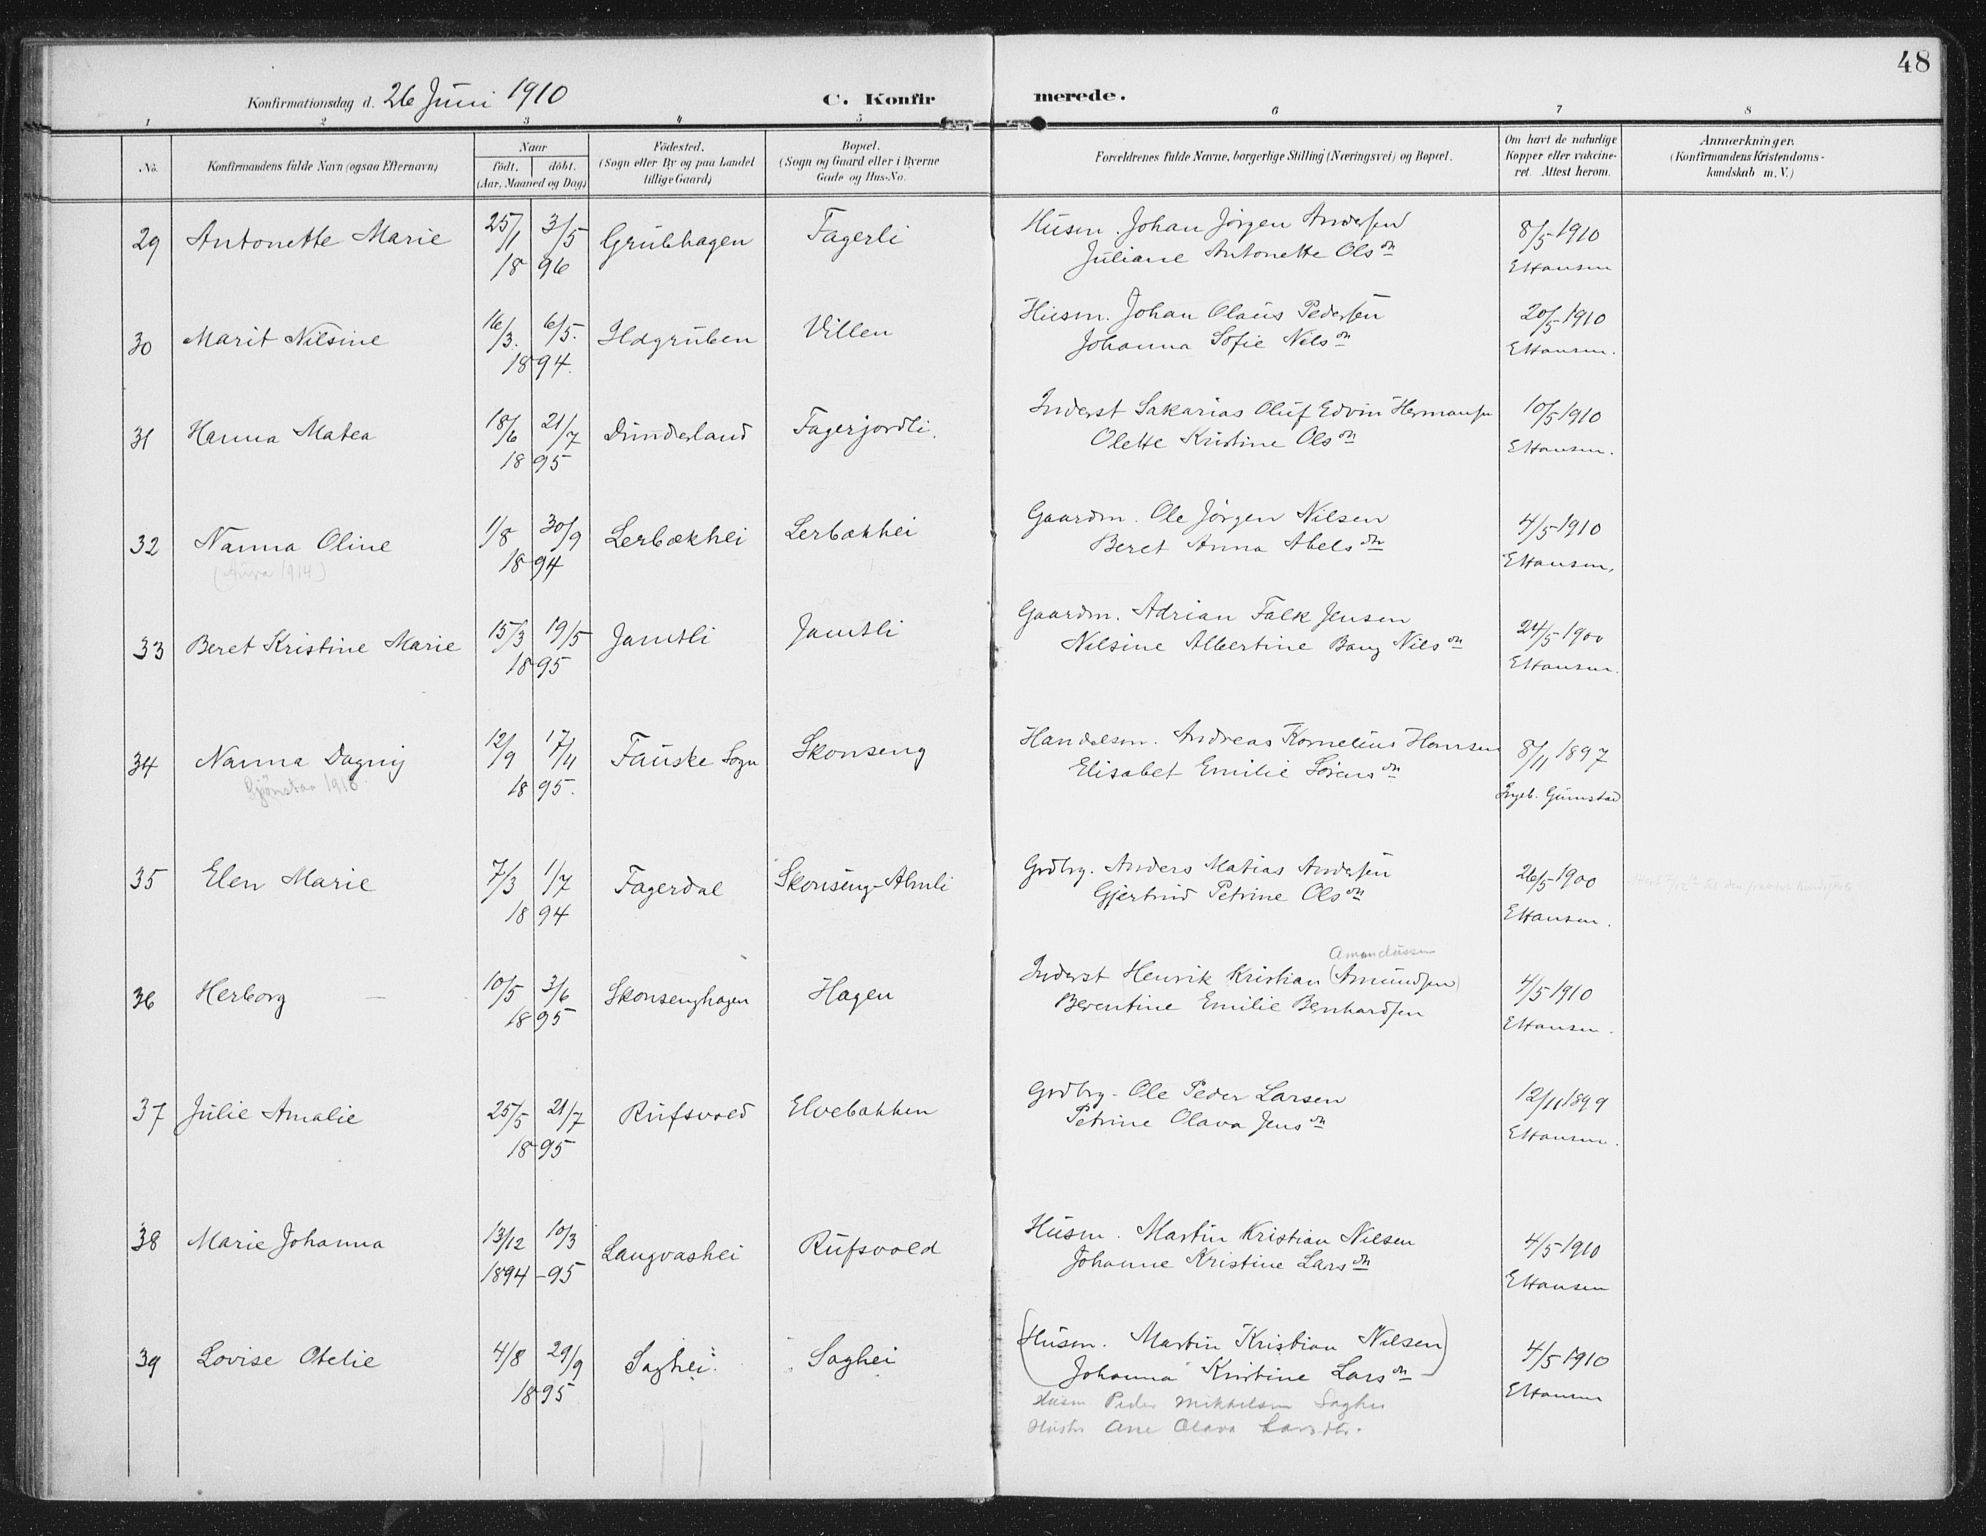 48
Konfirmationsdag d. 26 Juni 1910 C. Konfir merede.
1 2 3 4 5 6 7 8
No. Konfirmandens fulde Navn (ogsaa Efternavn) Naar født. døbt. (Aar, Maaned og Dag) Födested. (Sogn eller By og paa Landet tillige Gaard) Bopæl. (Sogn og Gaard eller i Byerne Gade og Hus-No. Forældrenes fulde Navne, borgerlige Stilling (Næringsvei) og Bopæl. Om havt de naturlige Kopper eller vakcineret. Attest herom. Anmærkninger. (Konfirmandens Kristendomskundskab m. V.)
29 Antonette Marie 25/1 3/5 1896 Grubhagen Fagerli Husm. Johan Jørgen Andersen 8/5 1910
Juliane Antonette Olsdn EHansen
30 Marit Nilsine 16/3. 6/5. 1894. Ildgruben Villen Husm. Johan Olaus Pedersen 20/5 1910
Johanna Sofie Nilsdn EHansen.
31 Hanna Matea 18/6 21/7 1895 Dunderland Fagerjordli. Inderst Sakarias Oluf Edvin Hermansen 10/5 1910
Olette Kristine Olsdn EHansen.
32 Nanna Oline 1/8 30/9 1894 Lerbækhei Lerbækhei Gaardm. Ole Jørgen Nilsen 4/5 1910
( 1914) Beret Anna Abelsdn EHansen.
33 Beret Kristine Marie 15/3 19/5 1895 Jamtli Jamtli Gaardm. Adrian Falk Jensen 24/5 1900
Nilsine Albertine Bang Nilsdn EHansen.
34 Nanna Dagny 12/9 17/11 1895. Fauske Sogn Skonseng Handelsm. Andreas Kornelius Hansen 8/11 1897
1918. Elisabet Emilie Sörensdn Ingeb.
35 Elen Marie 7/3 1/7 1894 Fagerdal Skonseng-Almli Grdbrg. Anders Matias Andersen 26/5 1900
Gjertrud Petrine Olsdn EHansen.
Amandussen
36 Herborg — 10/5 3/6 1895 Skonsenghagen Hagen Inderst Henrik Kristian (Amundsen) 4/5 1910
Berentine Emilie Bernhardsen EHansen.
37 Julie Amalie 25/5 21/7 1895 Rufsvold Elvebakken Grdbrg. Ole Peder Larsen 12/11 1899
Petrine Olava Jensdn EHansen.
38 Marie Johanna 13/12 10/3 1894-95 Langvashei Rufsvold Husm. Martin Kristian Nilsen 4/5 1910
Johanne Kristine Larsdn EHansen
39 Lovise Otelie 4/8 29/9 1895 Saghei Saghei (Husm. Martin Kristian Nilsen 4/5 1910
Johanna Kristine Larsdn) EHansen
Husm Peder Mikkelsen Saghei
Hustr Ane Olava Larsdtr.